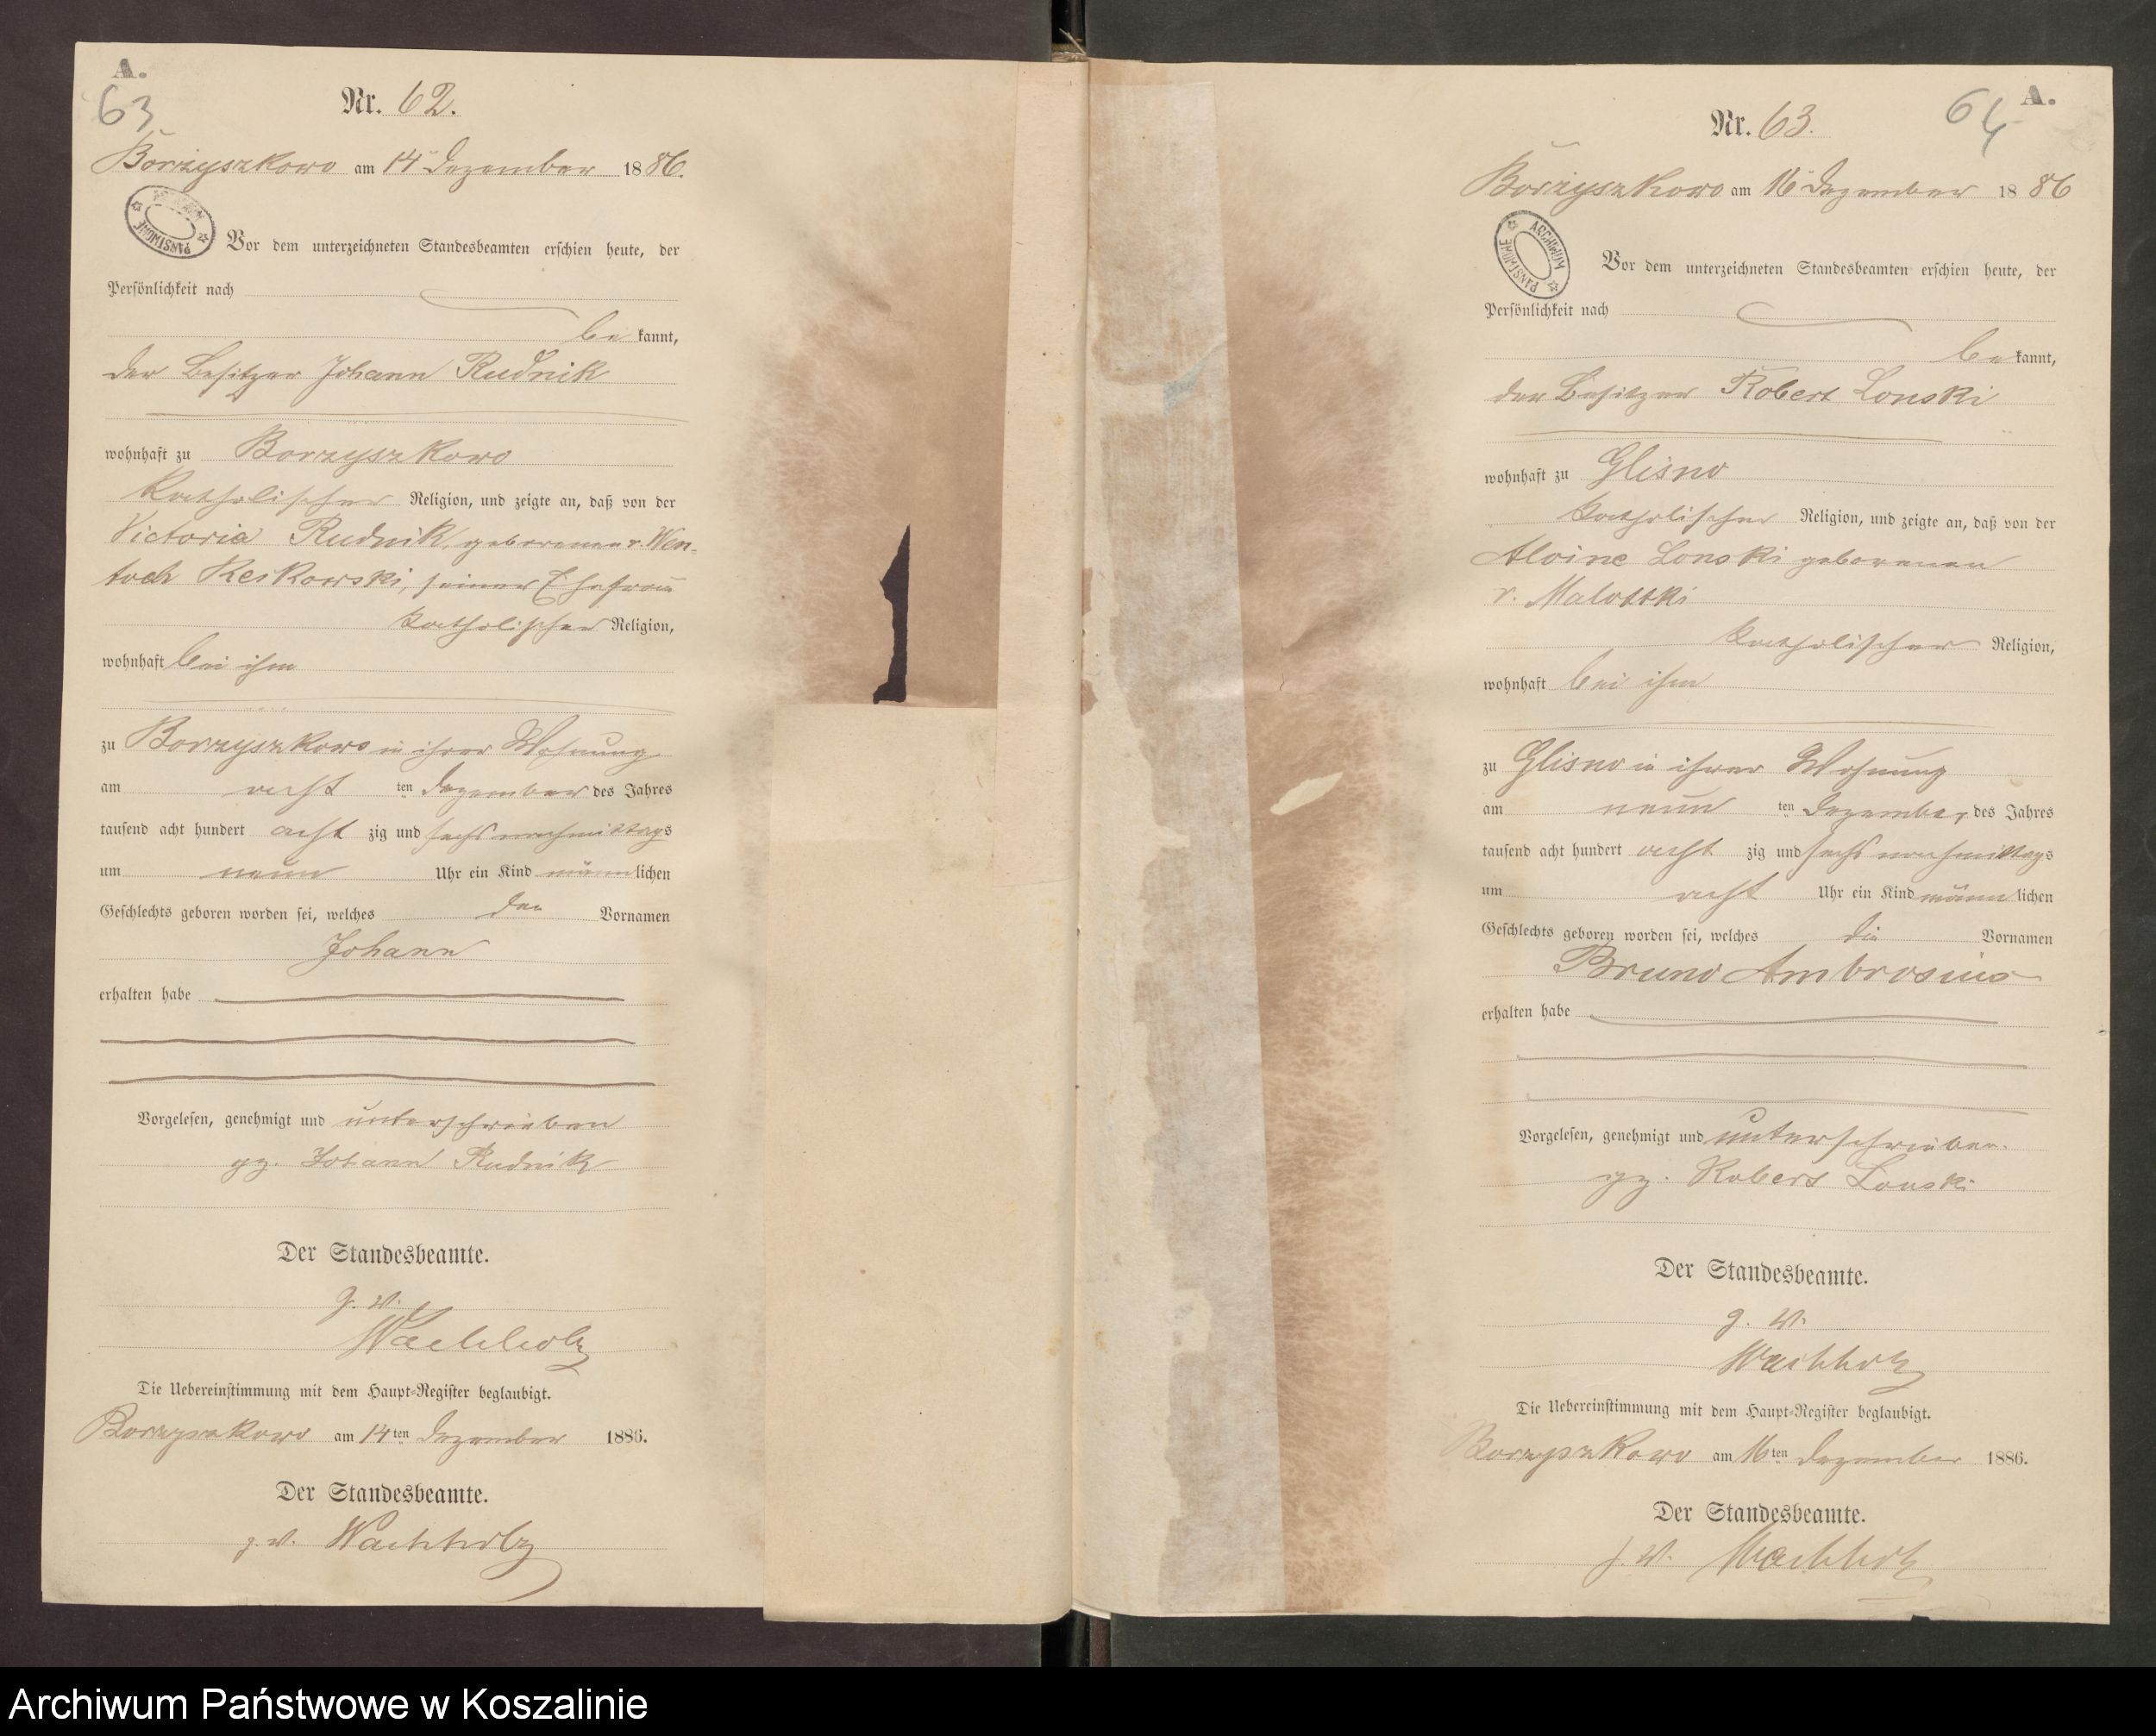 A.
63
Nr. 62.
Borzyszkowo am 14ten Dezember 1886.
ARCHIWUM PAŃSTWOWE
Vor dem unterzeichneten Standesbeamten erschien heute, der
Persönlichkeit nach
be kannt,
der Besitzer Johann Rudnik
wohnhaft zu Borzyszkowo
katholischer Religion, und zeigte an, daß von der
Victoria Rudnik, geborenen v. Wen-
toch Keikowski, seiner Ehefrau
katholischer Religion,
wohnhaft bei ihm
zu Borzyszkowo in ihrer Wohnung
am acht ten Dezember des Jahres
tausend acht hundert acht zig und sechs nachmittags
um neun Uhr ein Kind männlichen
Geschlechts geboren worden sei, welches den Vornamen
Johann
erhalten habe
Vorgelesen, genehmigt und unterschrieben
gz. Johann Rudnik
Der Standesbeamte.
Wachholz
Die Uebereinstimmung mit dem Haupt-Register beglaubigt.
Borzyszkowo am 14ten Dezember 1886.
Der Standesbeamte.
Wachholz
A.
64
Nr. 63.
Borzyszkowo am 16ten Dezember 1886
ARCHIWUM PAŃSTWOWE
Vor dem unterzeichneten Standesbeamten erschien heute, der
Persönlichkeit nach
be kannt,
der Besitzer Robert Lonski
wohnhaft zu Glisno
katholischer Religion, und zeigte an, daß von der
Alvine Lonski geborenen
v. Malottki
katholischer Religion,
wohnhaft bei ihm
zu Glisno in ihrer Wohnung
am neun ten Dezember des Jahres
tausend acht hundert acht zig und sechs nachmittags
um acht Uhr ein Kind männlichen
Geschlechts geboren worden sei, welches die Vornamen
Bruno Ambrosius
erhalten habe
Vorgelesen, genehmigt und unterschrieben.
gz. Robert Lonski
Der Standesbeamte.
Wachholz
Die Uebereinstimmung mit dem Haupt-Register beglaubigt.
Borzyszkowo am 16ten Dezember 1886.
Der Standesbeamte.
Wachholz
Archiwum Państwowe w Koszalinie